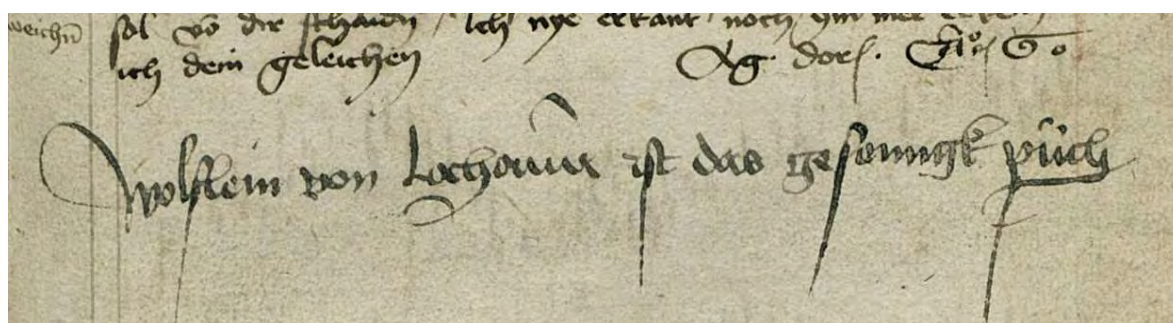 weichn̄ sol vō dir schaidn / Ich nye erkant noch ym mer
ich dein geleichen Ag. dorſ.
Wolflein von Lochamr̄ ist das gesenngk půch